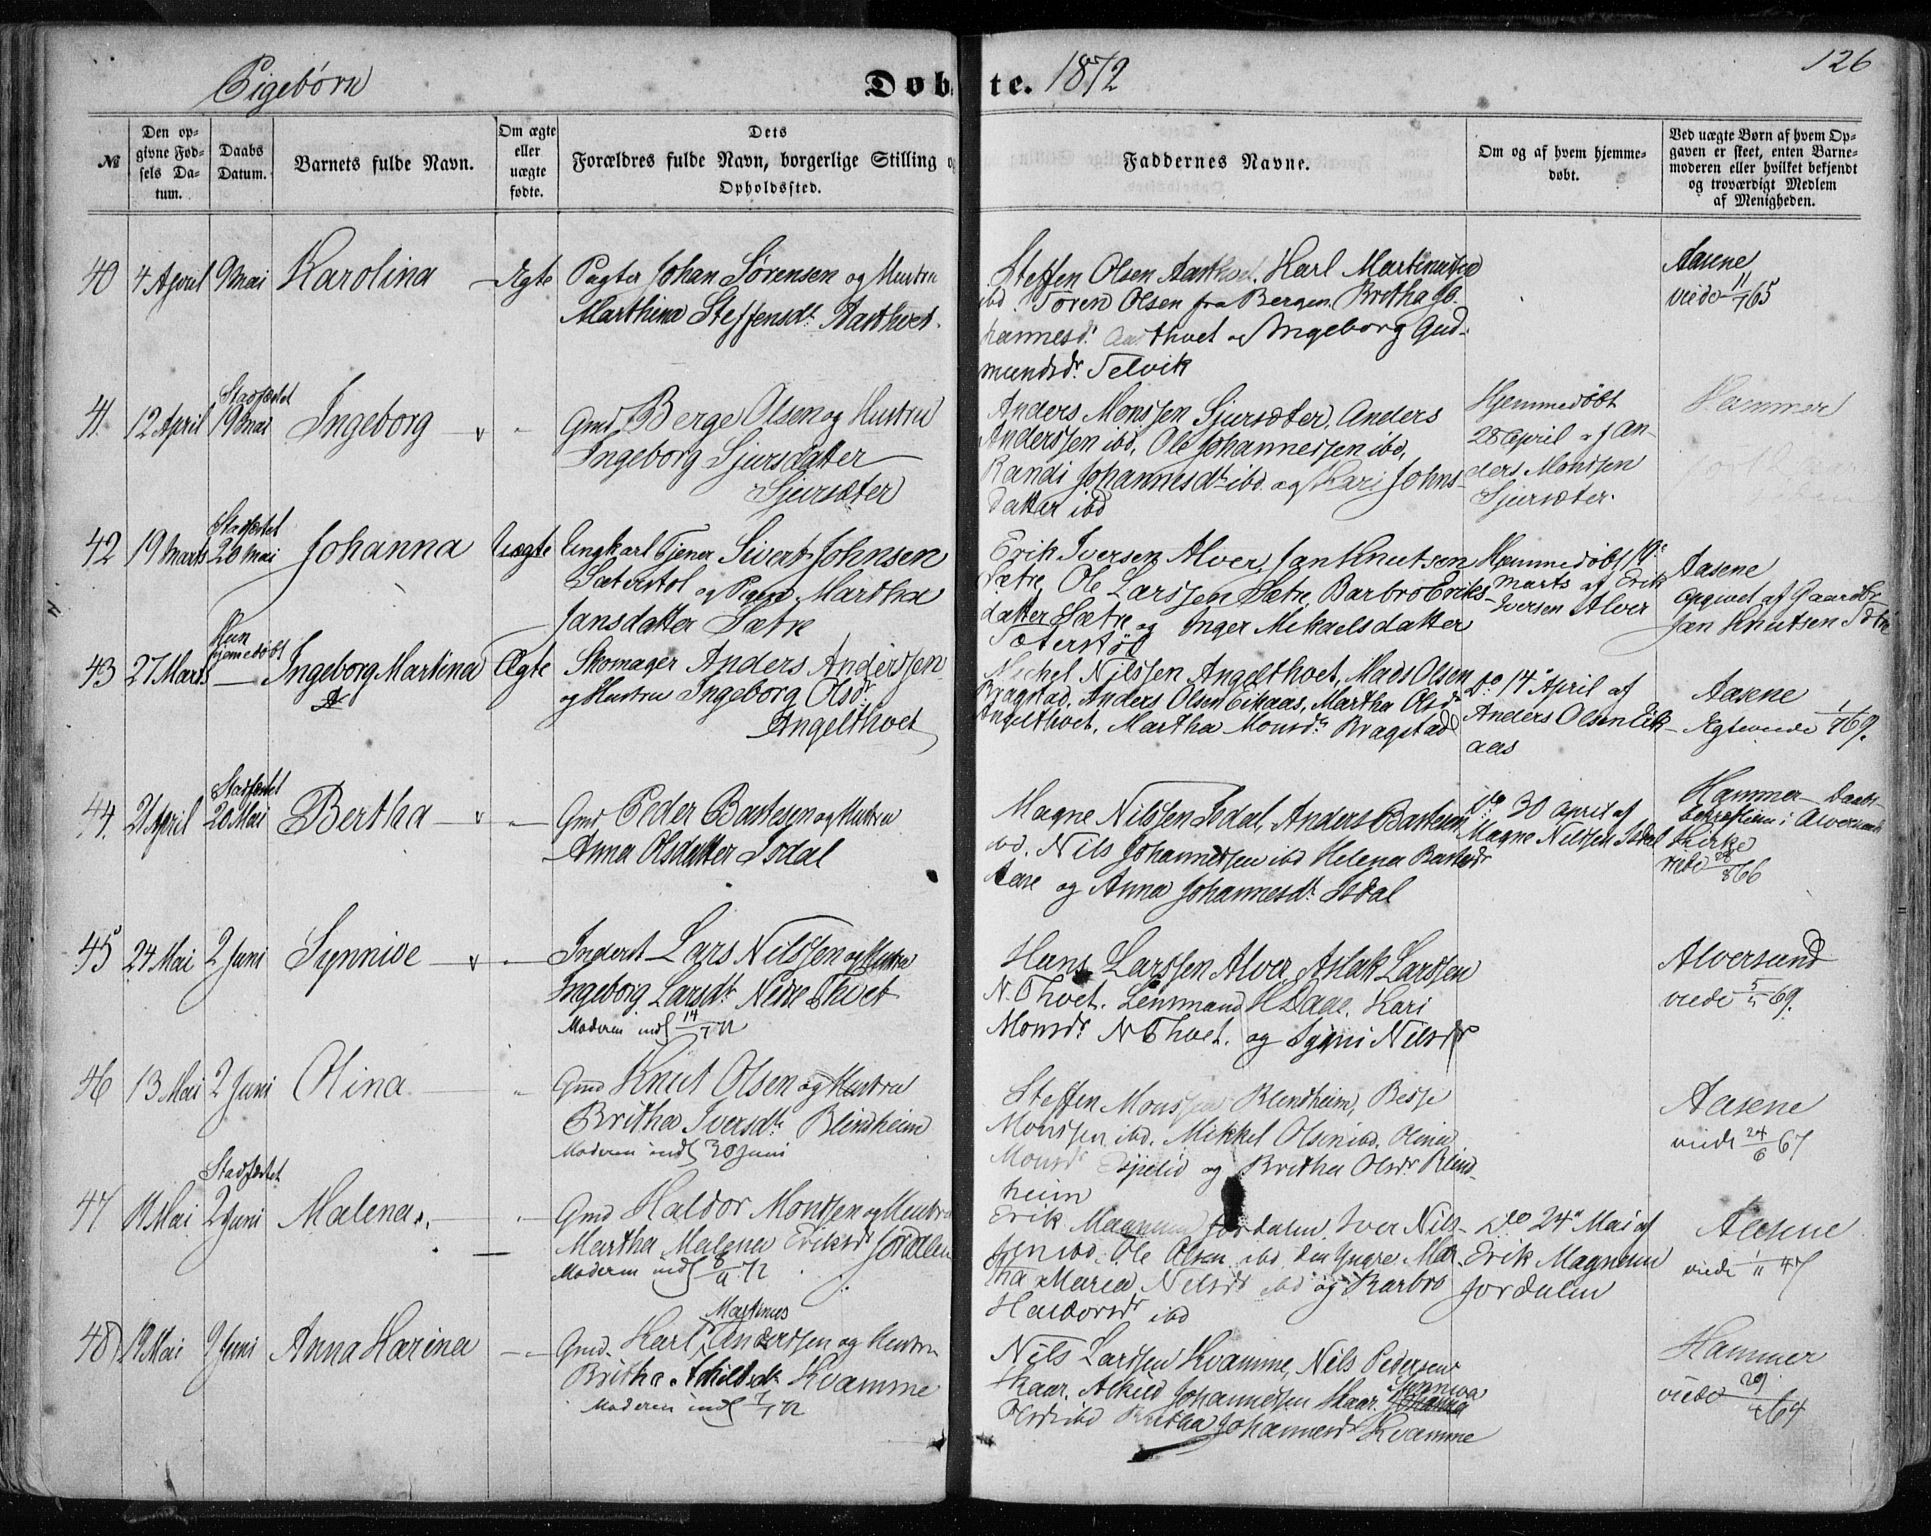 126
Pigebørn
Døbte. 1872
№
Den opgivne Fødsels Datum.
Daabs Datum.
Barnets fulde Navn.
Om ægte eller uægte fødte.
Dets
Forældres fulde Navn, borgerlige Stilling og
Opholdssted.
Faddernes Navne.
Om og af hvem hjemmedøbt.
Ved uægte Børn af hvem Opgaven er skeet, enten Barnemoderen eller hvilket bekjendt og troværdigt Medlem af Menigheden.
40 4 April 9 Mai Karolina Ægte
Pagter Johan Sørensen og Hustru
Marthina Steffensdr.
Steffen Olsen Karl
ibd. Søren Olsen fra Bergen, Britha Johannesdr. og Ingeborg Gudmundsdr. Telvik
Aasene
viede 11/7 65
41 12 April Stadfæstet 19 Mai Ingeborg
Gmd Berge Olsen og Hustru
Ingeborg Sjursdatter
Sjursæter
Anders Monssen Sjursæter, Anders
Anderssen ibd, Ole Johannessen ibd,
Randi Johannesdr ibd og Kari Johnsdatter ibd
Hjemmedøbt
28 April af Anders Monssen
Sjursæter.
Hammer
42 19 Marts Stadfæstet 20 Mai Johanna Uægte
Ungkarl Tjener Sivert Johnsen
Sæterstøl og Pigen Martha
Jansdatter Sætre
Erik Iversen Alver, Jan Knutsen
Sætre, Ole Larssen Sætre, Barbro Eriksdatter Sætre og Inger Mikaelsdatter
Sæterstøl
Hjemmedøbt
Marts af Erik
Iversen Alver
Aasene
opgivet af Gaardbr
Jan Knutsen
43 27 Marts Kun hjemmedøbt Ingeborg Martina Ægte
Skomager Anders Anderssen
og Hustru Ingeborg Olsdr.
Angelthvet
Michel Nilssen Angelthvet, Mads Olsen
Bragstad, Anders Olsen Eikaas, Martha Olsdr
Angelthvet, Martha Monsdr. Bragstad
Do 14 April af
Anders Olsen Eikaas
Aasene
Ægteviede 1/7 69.
44. 21 April Stadfæstet 20 Mai Bertha
Gmd Peder Bartesen og Hustru
Anna Olsdatter Isdal
Magne Nilssen Isdal, Anders Bartesen
ibd. Nils Johannessen ibd Helena
og Anna Johannesdr. Isdal
Do 30 April af
Magne Nilssen Isdal
Hammer
Kirke
viede 28/8 66
45 24 Mai 2 Juni Synnive
Inderst Lars Nilssen og Hustru
Ingeborg Larsdr. Nere Thvet
Moderen indl 14/7 72
Hans Larssen Alver, Aslak Larssen
N. Thvet. Lensmand Kari
Monsdr N Thvet. og Nilsdr
Alversund
viede 69.
46 13 Mai 2 Juni Olina
Gmd Knut Olsen og Hustru
Britha Iversdr. Blindheim
Moderen indl 30 Juni
Steffen Monssen Blindheim,
Monssen ibd. Mikkel Olsen ibd. Olina
Monsdr Espelid og Britha Olsdr Blindheim
Aasene
viede 24/6 67
47 19 Mai Stadfæstet 2 Juni Malena.
Gmd Haldor Monssen og Hustru
Martha Malena Eriksdr Jordalen
Moderen indl 8/9 72
Erik Magnussen Jordalen. Iver Nilssen ibd. Ole Olsen ibd den yngre Martha Maria Nilsdr ibd og Barbro
Haldorsdr ibd
Do 24 Mai af
Erik Magnussen
Jordalen
Aasene
viede
48 19 Mai 9 Juni Anna Karina
Gmd. Karl Martinus Anderssen og Hustru
Britha Kvamme
Moderen indl 7/7 72
Nils Larssen Kvamme, Nils Pedersen
Skaar, Johannessen Skaar. Synneva
Olsdr ibd Britha Johannesdr Kvamme
Hammer
viede 64